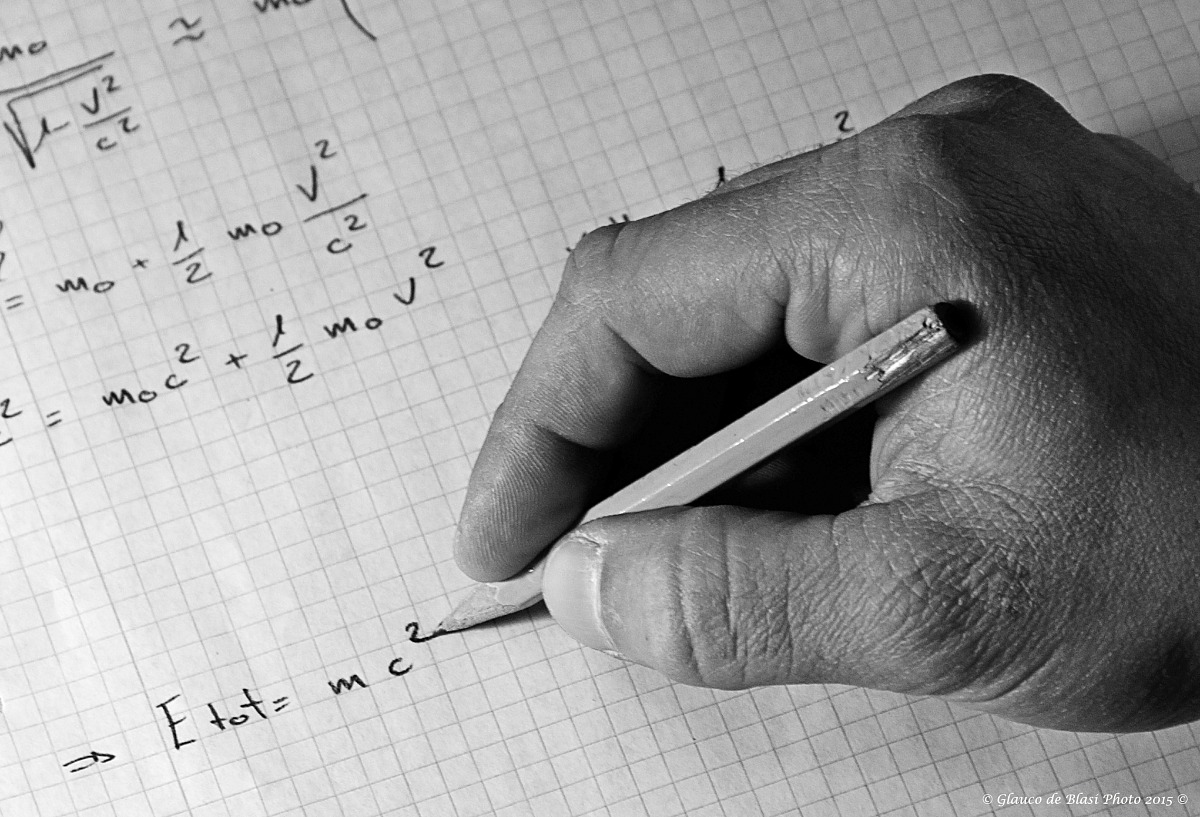 mo / √(1 - v²/c²) ≈ mo (
= mo + 1/2 mo v²/c²
² = moc² + 1/2 mo v²
⇒ E tot = mc²
© Glauco de Blasi Photo 2015 ©